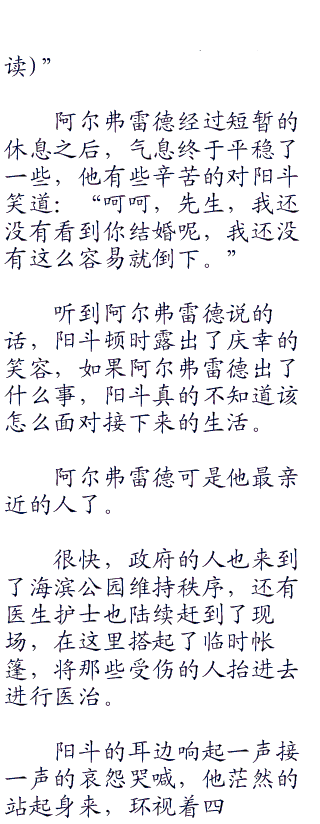 读)”
阿尔弗雷德经过短暂的
休息之后，气息终于平稳了
一些，他有些辛苦的对阳斗
笑道：“呵呵，先生，我还
没有看到你结婚呢，我还没
有这么容易就倒下。”
听到阿尔弗雷德说的
话，阳斗顿时露出了庆幸的
笑容，如果阿尔弗雷德出了
什么事，阳斗真的不知道该
怎么面对接下来的生活。
阿尔弗雷德可是他最亲
近的人了。
很快，政府的人也来到
了海滨公园维持秩序，还有
医生护士也陆续赶到了现
场，在这里搭起了临时帐
篷，将那些受伤的人抬进去
进行医治。
阳斗的耳边响起一声接
一声的哀怨哭喊，他茫然的
站起身来，环视着四